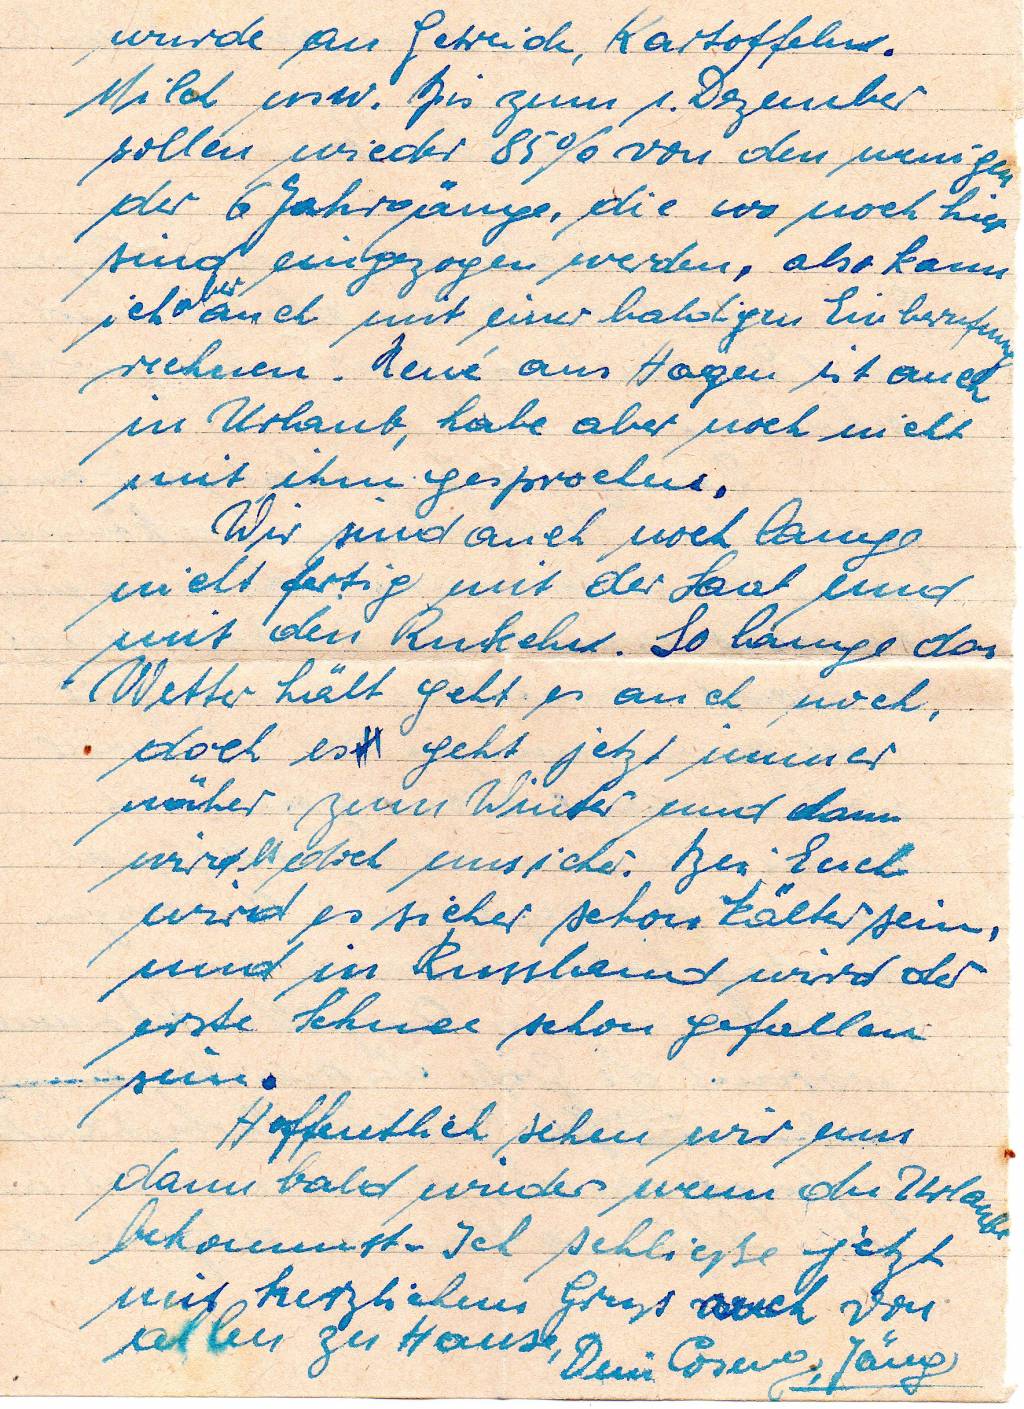 wurde an Getreide, Kartoffeln.
Milch usw. Bis zum 1. Dezember
sollen wieder 85% von den wenigen
der 6 Jahrgänge, die wo noch hier
sind, eingezogen werden, also kann
ich aber auch mit einer baldigen Einberufung
rechnen. René aus Hagen ist auch
in Urlaub, habe aber noch nicht
mit ihm gesprochen.
Wir sind auch noch lange
nicht fertig mit der Saat und
mit den. So lange das
Wetter hält geht es auch noch,
doch es geht jetzt immer
näher zum Winter und dann
wird doch unsicher. Bei Euch
wird es sicher schon kälter sein,
und in Russland wird der
erste Schnee schon gefallen
sein.
Hoffentlich sehen wir uns
dann bald wieder wenn du Urlaub
bekommst. Ich schließe jetzt
mit herzlichem Gruss auch von
allen zu Hause,
Dein